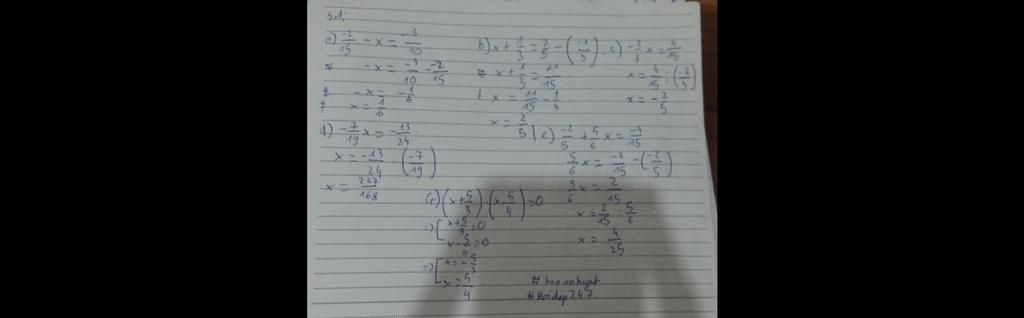 3.1:
a) -2/15 - x = -3/10
-x = -3/10 - -2/15
-x = -1/6
x = 1/6
b) x + 1/3 = 2/5 - (-1/3)
x + 1/3 = 11/15
x = 11/15 - 1/3
x = 2/5
c) -2/3 x = 4/15
x = 4/15 : (-2/3)
x = -2/5
d) -7/19 x = -13/24
x = -13/24 : (-7/19)
x = 247/168
e) -2/5 + 5/6 x = -4/15
5/6 x = -4/15 - (-2/5)
5/6 x = 2/15
x = 2/15 : 5/6
x = 4/25
(x + 5/3) . (x - 5/4) = 0
=> [ x + 5/3 = 0
x - 5/4 = 0
=> [ x = -5/3
x = 5/4
#Hoidap247.